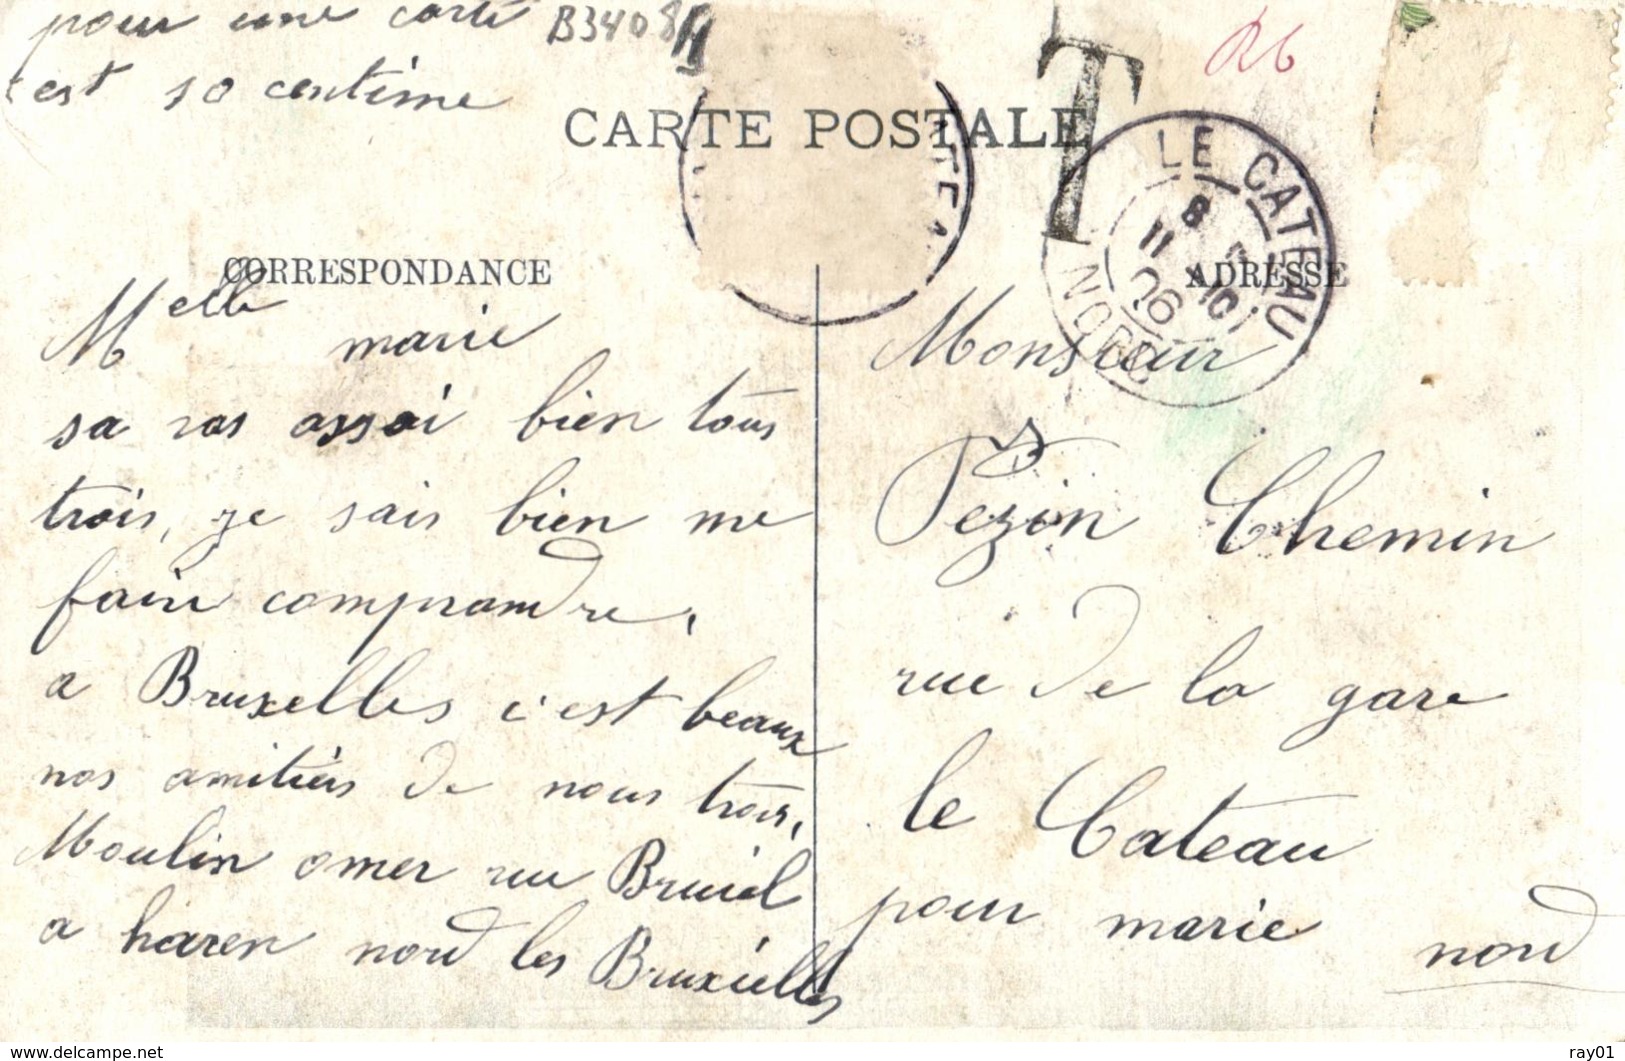 pour une carte B34084
c'est 10 centime
CARTE POSTALE
T
LE CATEAU
8
11 10
06
NORD
CORRESPONDANCE
ADRESSE
Melle marie
sa vas assai bien tous
trois, je sais bien me
faire comprandre,
a Bruxelles c'est beaux
nos amitiés de nous trois,
Moulin omer rue Bruiel
a haren nord les Bruxielles
Monsieur
Pézin Chemin
rue de la gare
le Cateau
pour marie
nord
https://www.delcampe.net
ray01